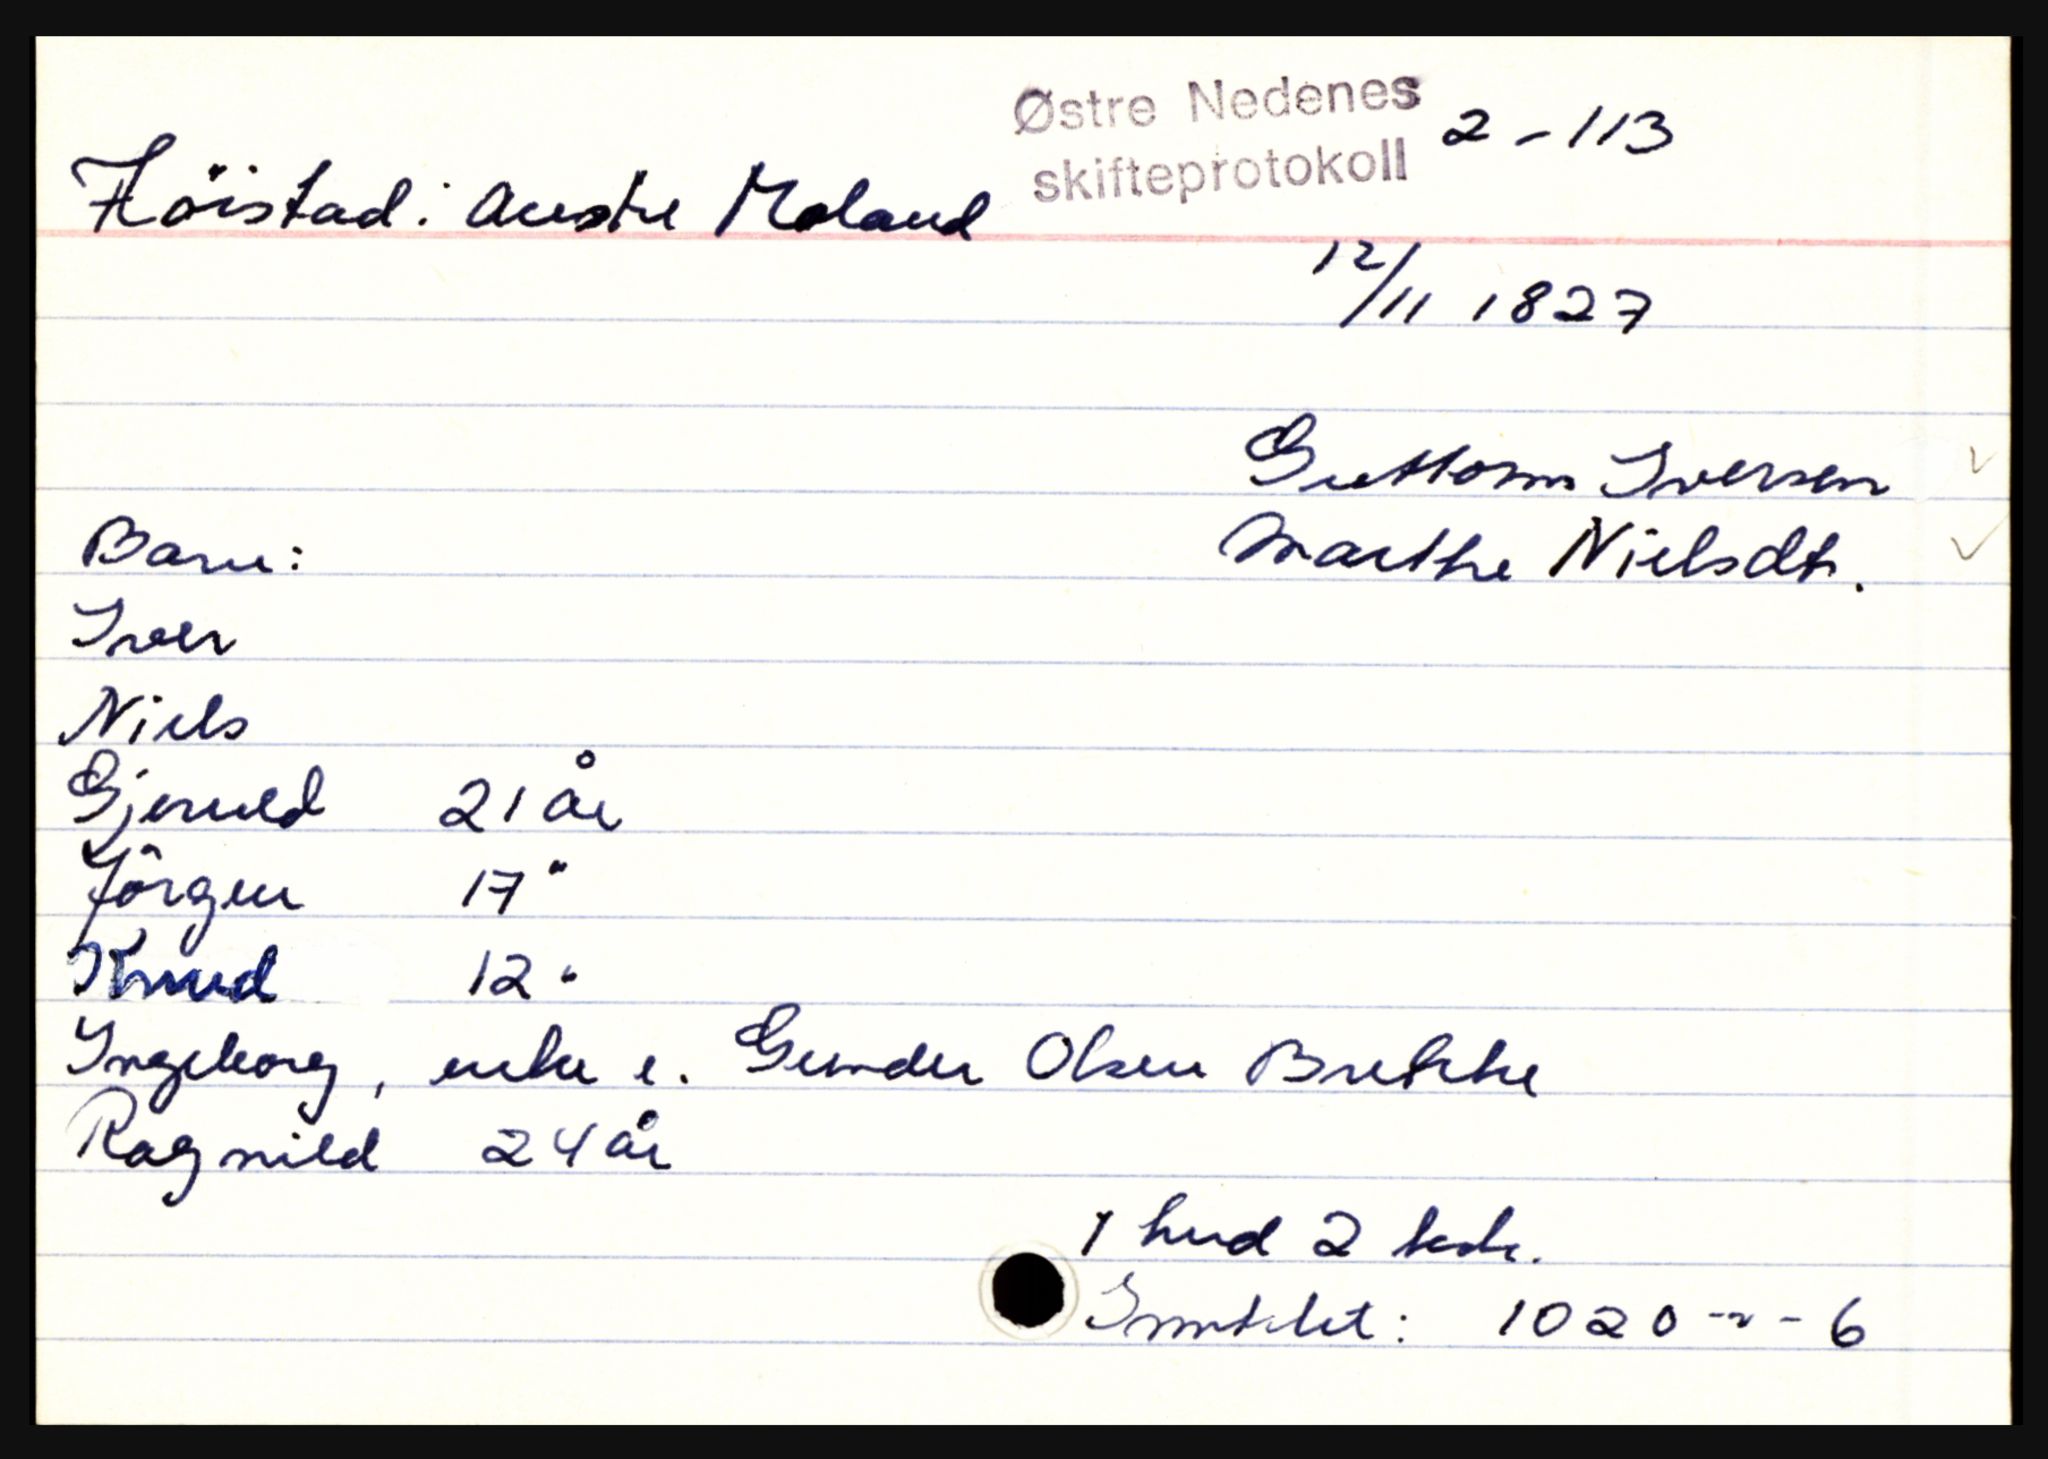 Østre Nedenes
skifteprotokoll 2-113
Höistad: Austre Moland
12/11 1827
Guttorm Iversen
Marthe Nielsdtr.
Barn:
Iver
Niels
Gjeruld 21 år
Jörgen 17 "
Knud 12 "
Ingeborg, enke e. Gunder Olsen Brekke
Ragnild 24 år
1 hud 2
: 1020 - " - 6